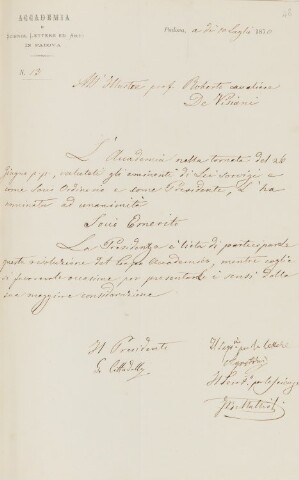 ACCADEMIA
DI
SCIENZE LETTERE ED ARTI
IN PADOVA
N. 12
Padova, a dì 10 Luglio 1870
All' Illustre prof. Roberto cavaliere
De Visiani
L'Accademia nella tornata del 26
Giugno p.p, valutati gli eminenti di Lei servigi e
come Socio Ordinario e come Presidente, L'ha
nominata ad unanimità
Socio Emerito.
La Presidenza è lieta di participarle
questa risoluzione del Corpo Accademico, mentre coglie
la favorevole occasione per presentarle i sensi della
sua maggiore considerazione
Il Presidente
De Cittadella
Il Segr. per le lettere
Il Segr. per le scienze